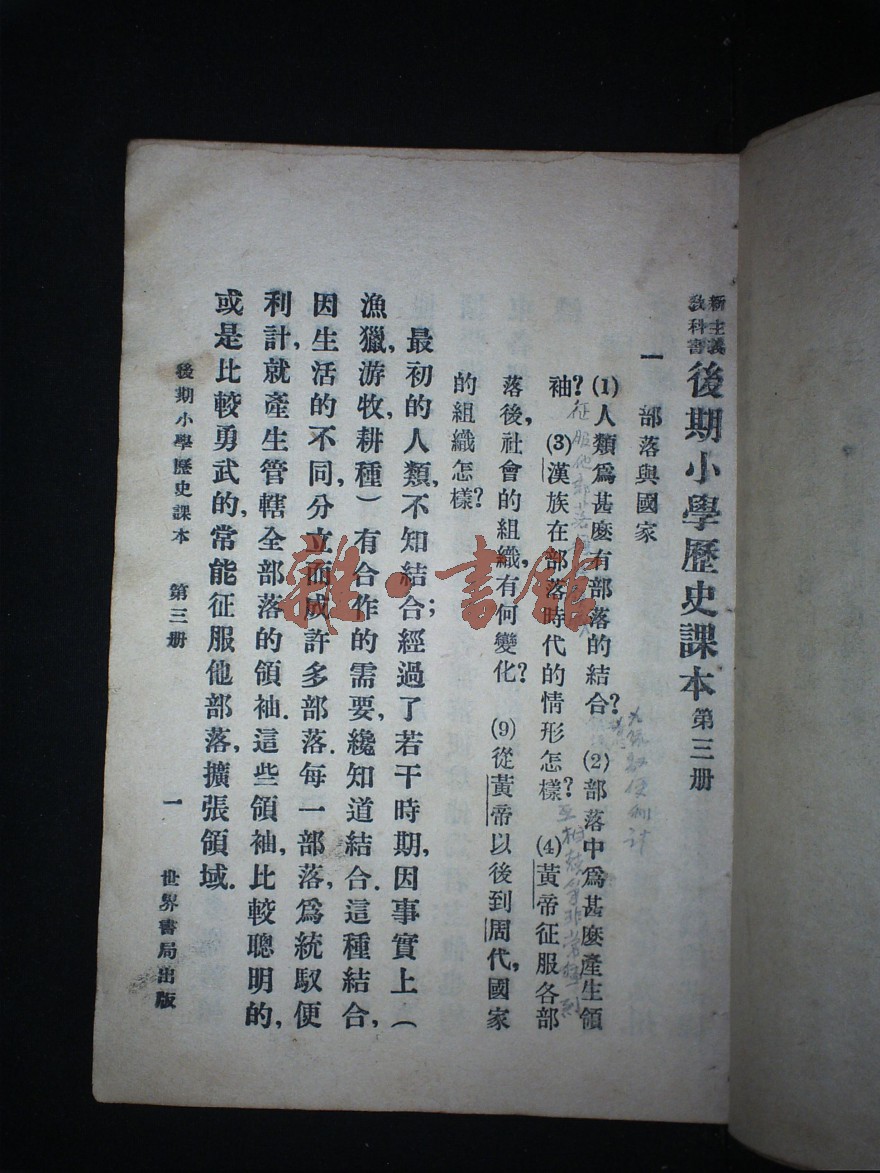 新主義
教科書
後期小學歷史課本 第三册
一 部落與國家
(1)人類爲甚麽有部落的結合? (2)部落中爲甚麽產生領
袖? (3)漢族在部落時代的情形怎樣? (4)黃帝征服各部
落後,社會的組織,有何變化? (9)從黃帝以後到周代,國家
的組織怎樣?
最初的人類,不知結合;經過了若干時期,因事實上(
漁獵,游牧,耕種)有合作的需要,纔知道結合.這種結合,
因生活的不同,分立而成許多部落.每一部落,爲統馭便
利計,就產生管轄全部落的領袖.這些領袖,比較聰明的,
或是比較勇武的,常能征服他部落,擴張領域.
後期小學歷史課本 第三册 一 世界書局出版
雜·書館